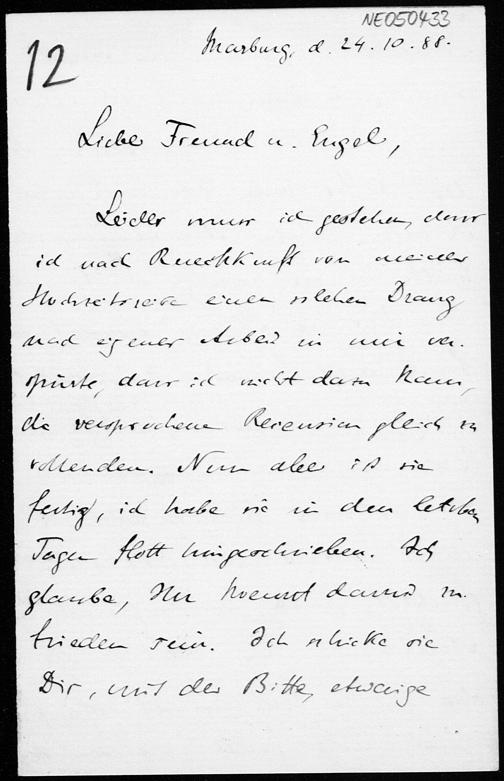 NE050433
12
Marburg, d. 24.10.88.
Lieber Freund u. Engel,
Leider muss ich gestehen, dass
ich nach Rueckkunft von meiner
Hochzeitsreise einen solchen Drang
nach eigener Arbeit in mir ver-
spürte, dass ich nicht dazu kam,
die versprochene Recension gleich zu
vollenden. Nun aber ist sie
fertig, ich habe sie in den letzten
Tagen flott hingeschrieben. Ich
glaube, Ihr koennt damit zu-
frieden sein. Ich schicke sie
Dir, mit der Bitte, etwaige